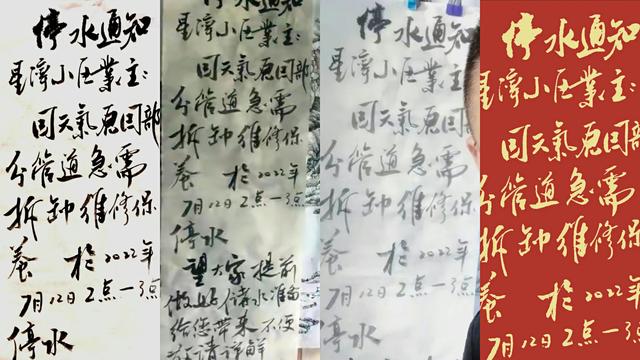 停水通知
星湾小区業主:
因天氣原因部
分管道急需
拆卸维修保
养 於2022年
7月12日2点一3点
停水
停水通知
星湾小区業主:
因天氣原因部
分管道急需
拆卸维修保
养 於2022年
7月12日2点一3点
停水
望大家提前
做好儲水准备
给您带来不便
敬请谅解
停水通知
星湾小区業主:
因天氣原因
分管道急需
拆卸维修保
养 於2022年
7月12日2点一3点
停水
停水通知
星湾小区業主:
因天氣原因部
分管道急需
拆卸维修保
养 於2022年
7月12日2点一3点